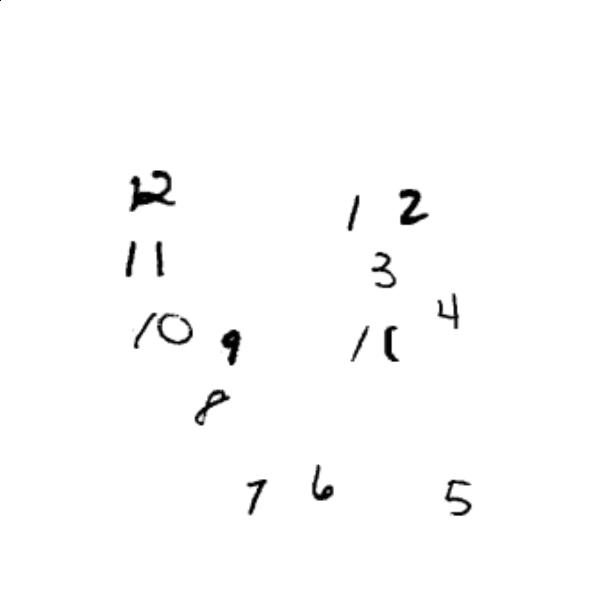 12 1 2
11 3
4
10 9 11
8
7 6 5